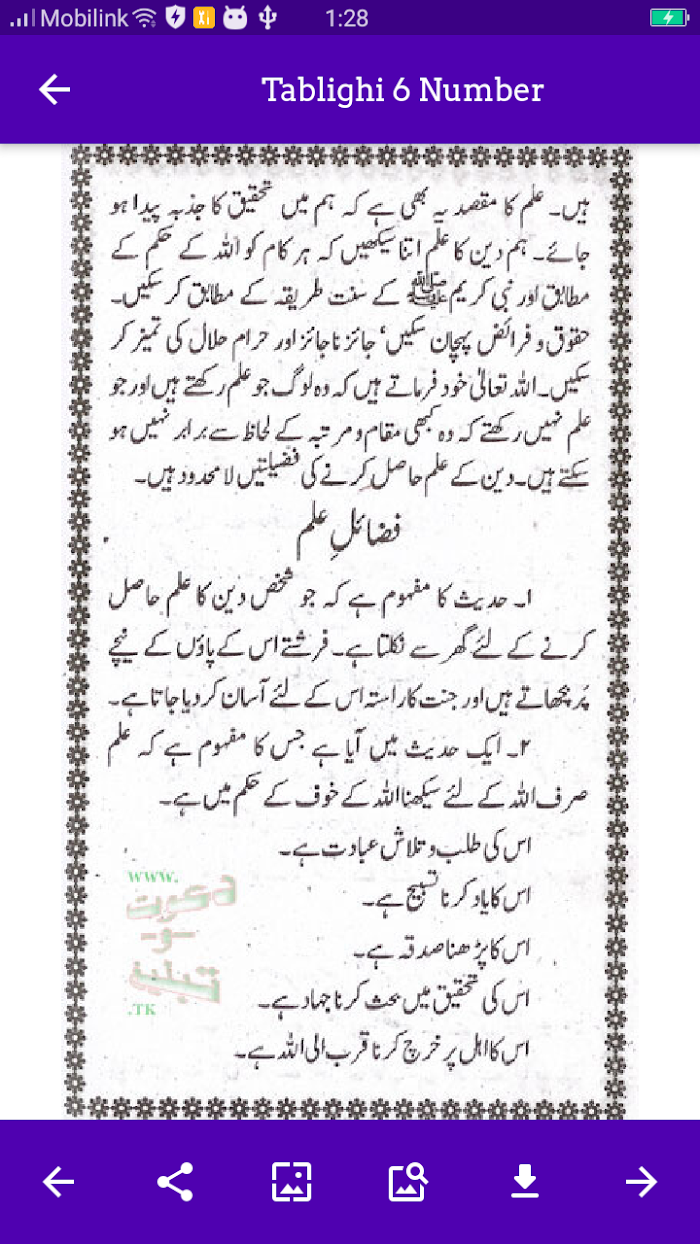 Mobilink 1:28
Tablighi 6 Number
ہیں۔ علم کا مقصد یہ بھی ہے کہ ہم میں تحقیق کا جذبہ پیدا ہو
جائے۔ ہم دین کا علم اتنا سیکھیں کہ ہر کام کو اللہ کے حکم کے
مطابق اور نبی کریم ﷺ کے سنت طریقہ کے مطابق کر سکیں۔
حقوق و فرائض پہچان سکیں، جائز ناجائز اور حرام حلال کی تمیز کر
سکیں۔ اللہ تعالیٰ خود فرماتے ہیں کہ وہ لوگ جو علم رکھتے ہیں اور جو
علم نہیں رکھتے کہ وہ کبھی مقام و مرتبہ کے لحاظ سے برابر نہیں ہو
سکتے ہیں۔ دین کے علم حاصل کرنے کی فضیلتیں لا محدود ہیں۔
فضائلِ علم
۱۔ حدیث کا مفہوم ہے کہ جو شخص دین کا علم حاصل
کرنے کے لئے گھر سے نکلتا ہے۔ فرشتے اس کے پاؤں کے نیچے
پَر بچھاتے ہیں اور جنت کا راستہ اس کے لئے آسان کر دیا جاتا ہے۔
۲۔ ایک حدیث میں آیا ہے جس کا مفہوم ہے کہ علم
صرف اللہ کے لئے سیکھنا اللہ کے خوف کے حکم میں ہے۔
اس کی طلب و تلاش عبادت ہے۔
اس کا یاد کرنا تسبیح ہے۔
اس کا پڑھنا صدقہ ہے۔
اس کی تحقیق میں بحث کرنا جہاد ہے۔
اس کا اہل پر خرچ کرنا قرب الی اللہ ہے۔
www.
دعوت
-و-
تبلیغ
.TK